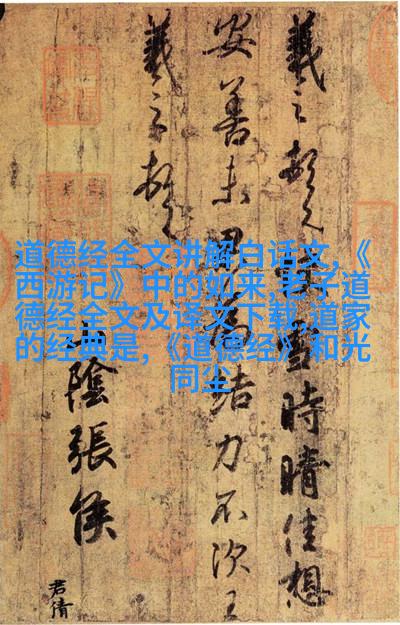 道德经全文讲解白话文,《
西游记》中的如来,老子道
德经全文及译文下载,道家
的经典是,《道德经》和光
同尘
羲之頓首雪時晴佳想
安善未果為結力不次王
羲之頓首
山陰張侯
君倩